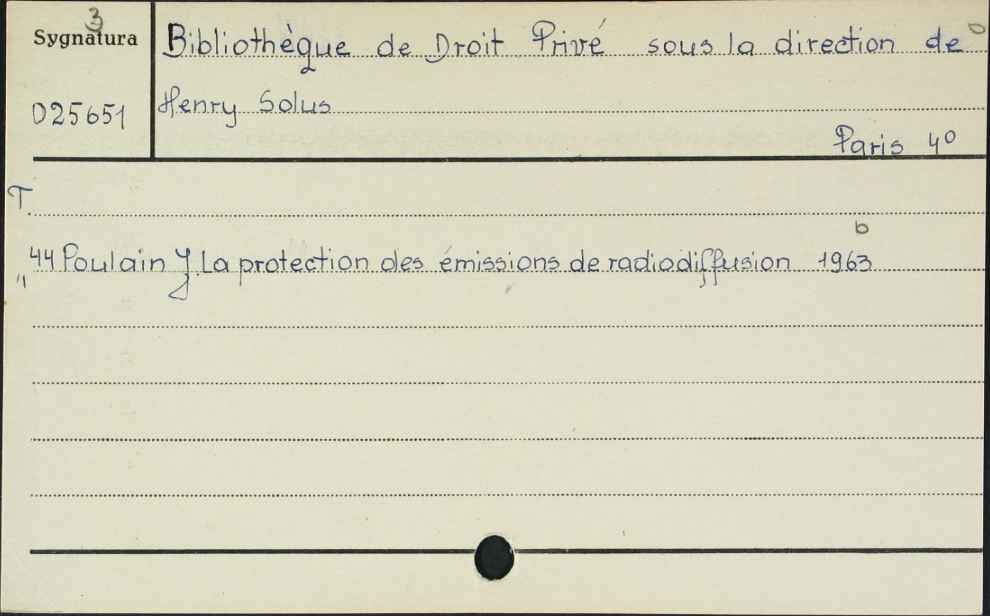 3
Sygnatura
D25651
Bibliothèque de Droit Privé sous la direction de
Henry Solus
Paris 4º
T.
44 Poulain J. La protection des émissions de radiodiffusion 1963
b